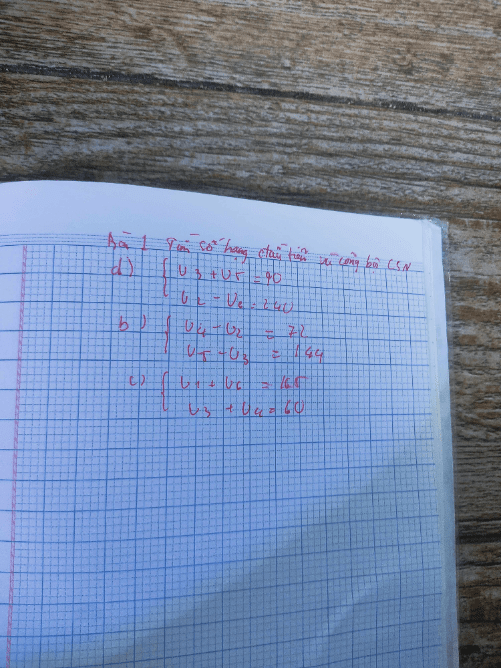 Bài 1 Tìm số hạng đầu tiên và công bội CSN
a) { U3 + U5 = 90
U2 - U6 = 240
b) { U4 - U2 = 72
U5 - U3 = 144
c) { U1 + U6 = 165
U3 + U4 = 60